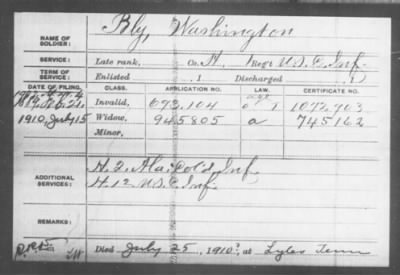 NAME OF SOLDIER: Bly, Washington
SERVICE: Late rank, Co. A, 1 Reg't U.S.C. Inf.
TERM OF SERVICE: Enlisted 1 Discharged 1
DATE OF FILING. CLASS. APPLICATION NO. LAW. CERTIFICATE NO.
Invalid, 693,104 1072,703
1910, July 15 Widow, 945805 a 745162
Minor,
ADDITIONAL SERVICES: H. 2. Ala. Col'd Inf
H. 12 U.S.C. Inf.
REMARKS:
Died July 25, 1910, at Lyles Tenn